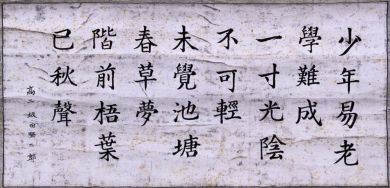 少年易老
學難成
一寸光陰
不可輕
未覺池塘
春草夢
階前梧葉
已秋聲
高二